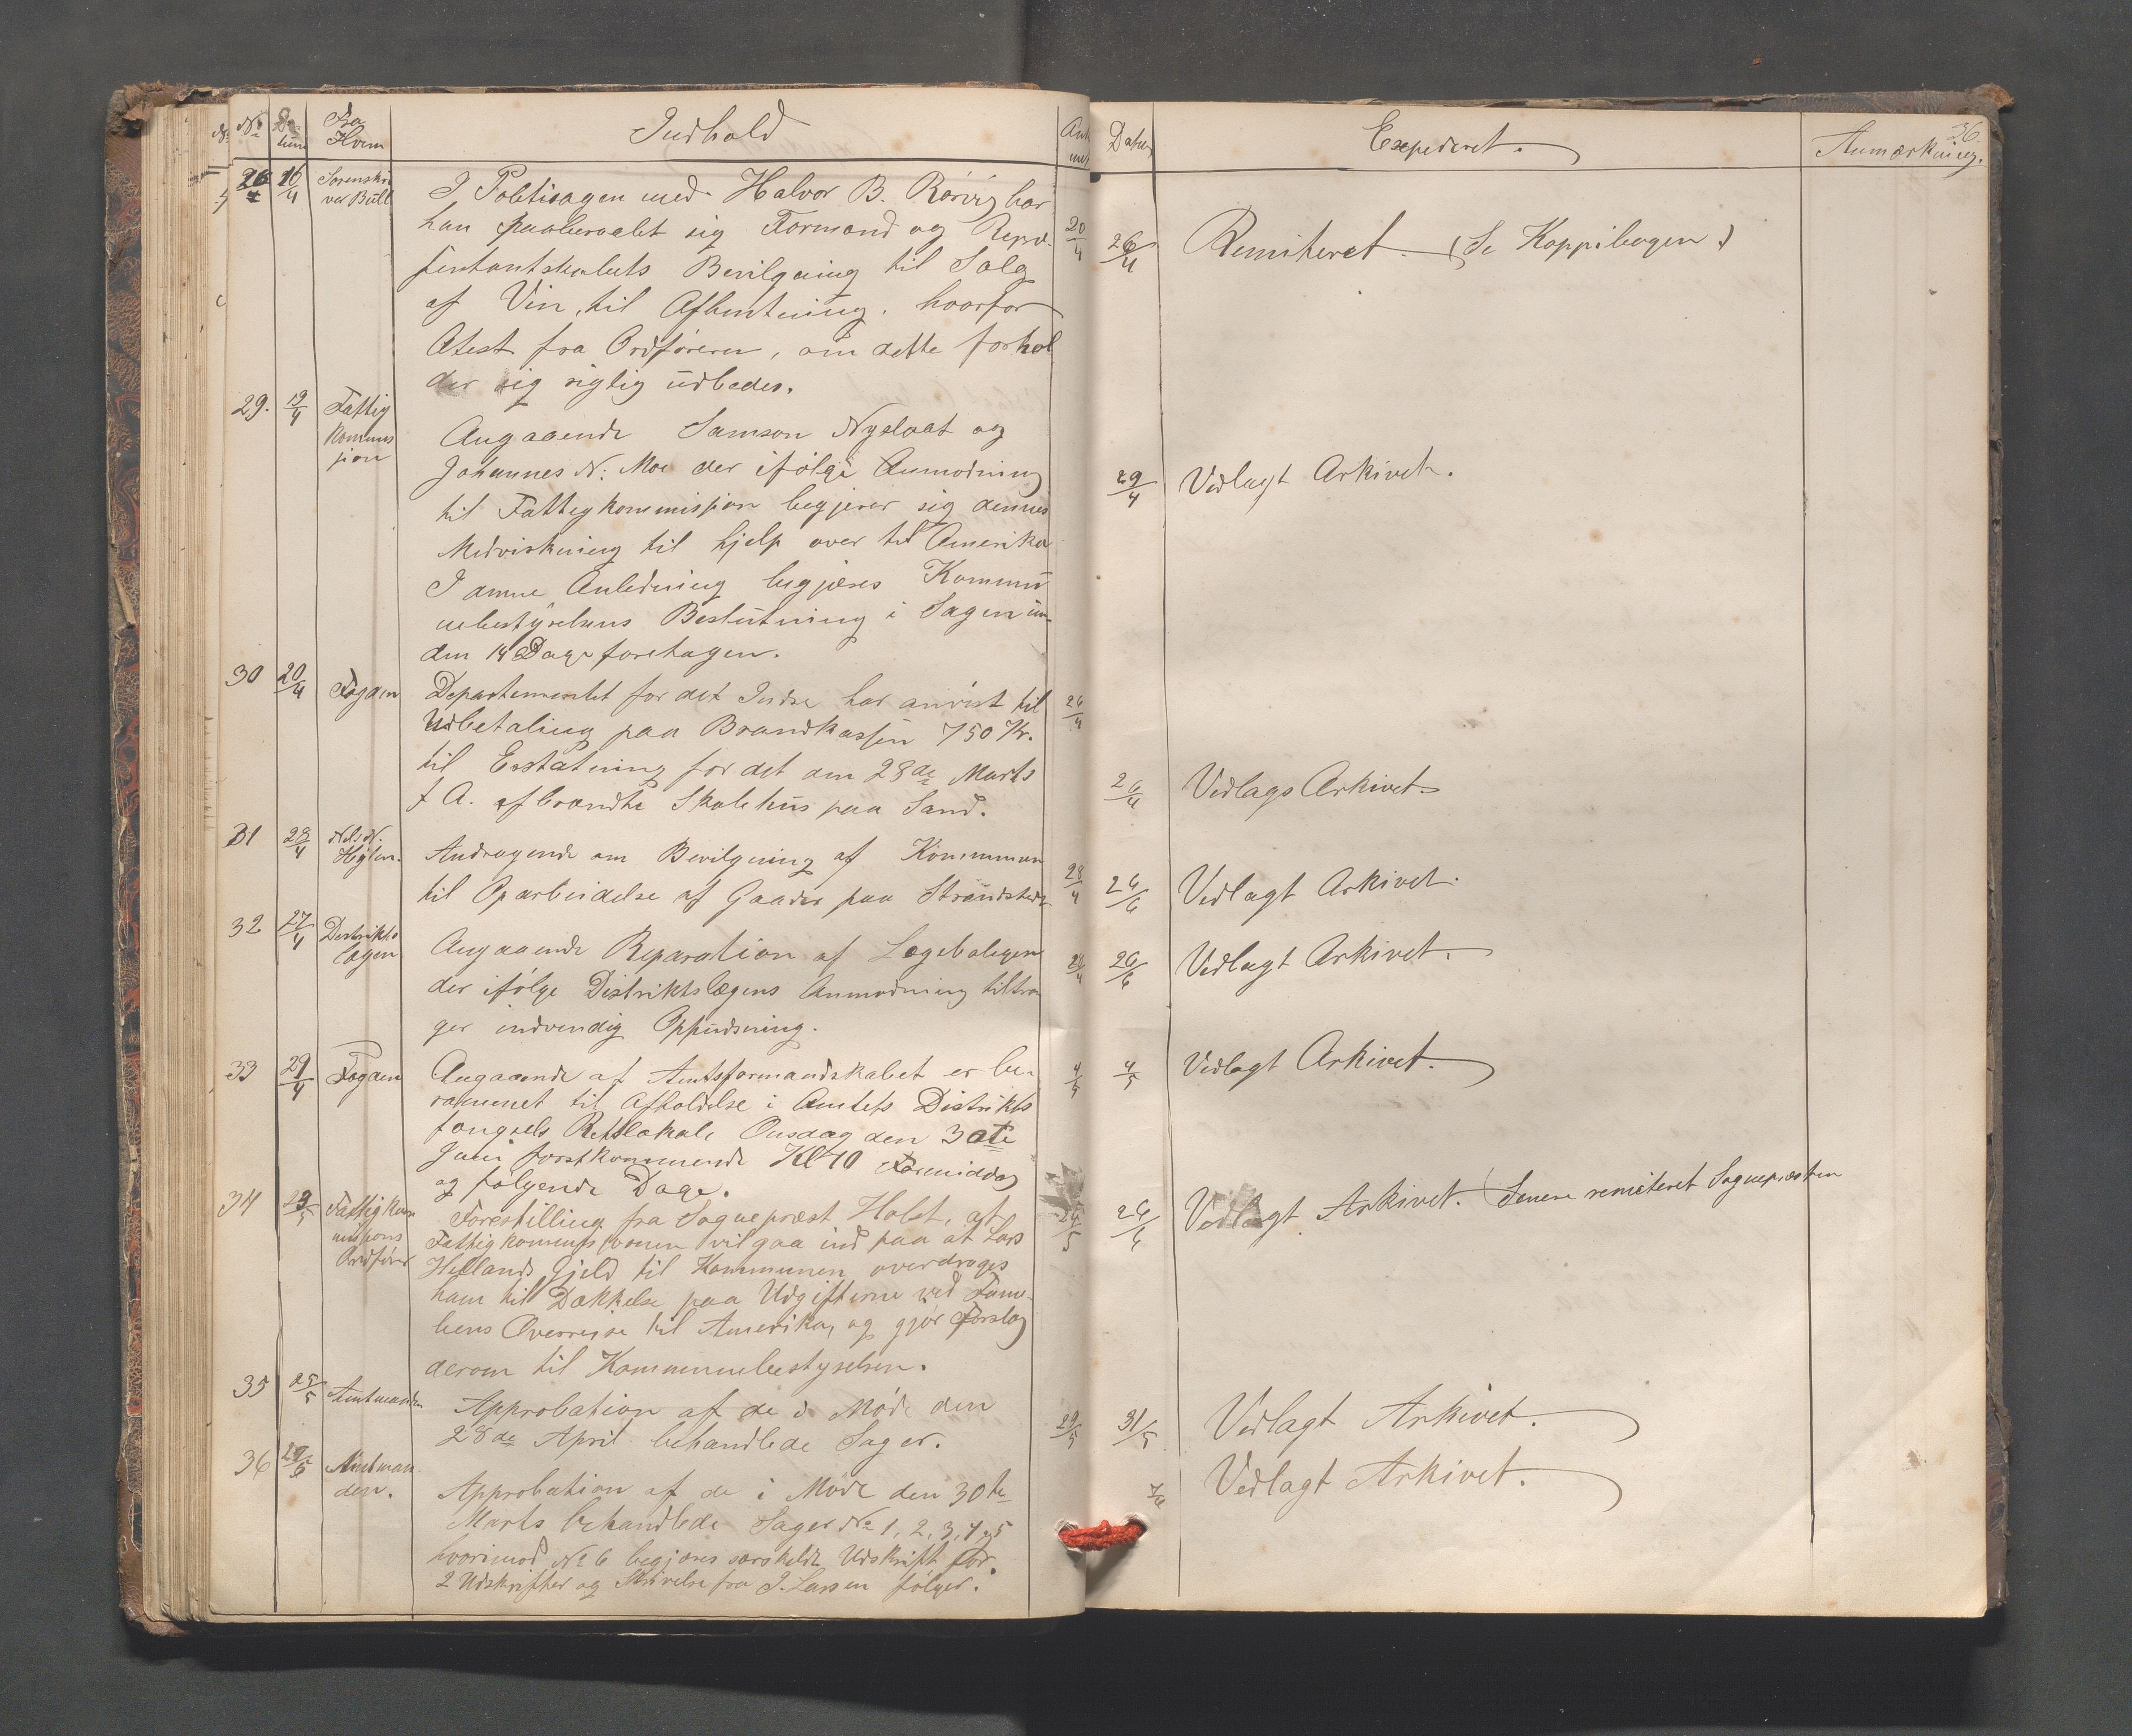 No. Datum Fra Hvem Indhold Ank
26 16/4 Sorenskri
ver Bull
I Politisagen med Halvor B. Rørvig har
han paaberaabt sig Formand og Repræ-
sentantskabets Bevilgning til Salg
af Vin, til Afhentning, hvorfor
Atest fra Ordføreren, om dette forhol
der sig rigtig udbedes.
20/4
29. 19/4 Fattig
Kommis
sion
Angaaende Samson Nysloat og
Johannes N. Moe der ifølge Anmodning
til Fattigkommission begjerer sig dennes
Medvirkning til hjelp over til Amerika
I denne Anledning begjæres Kommu
nebestyrelsens Beslutning i Sagen in-
den 14 Dage foretagen.
30 20/4 Fogden
Departementet for det Indre har anvist til
Udbetaling paa Brandkassen 750 Kr.
til Erstatning for det den 28de Marts
f A. afbrændte Skolehus paa Sand.
26/4
31 28/4 Nels N.
Hylen.
Andragende om Bevilgning af Kommunen
til Oparbeidelse af Gaader paa Strandstedet
28/4
32 27/4 Distrikts
lægen
Angaaende Reparation af Lægeboligen
der ifølge Distriktslægens Anmodning tiltræn
ger indvendig Oppudsning.
28/4
33 29/4 Fogden
Angaaende at Amtsformandskabet er be-
rammet til Afholdelse i Amtets Distrikts
fængsels Retslokale Onsdag den 30te
Juni førstkommende Kl 10 Formiddag
og følgende Dage.
4/5
34 23/5 Fattigkom
missions
Ordfører
Forestilling fra Sognepræst Holst, at
Fattigkommissionen vil gaa ind paa at Lars
Hellands Gjeld til Kommunen overdrages
ham til Dækkelse paa Udgifterne ved Fami-
liens Overreise til Amerika, og gjør Forslag
derom til Kommunebestyrelsen.
24/5
35 25/5 Amtmanden
Approbation af de i Møde den
28de April behandlede Sager.
29/5
36 29/5 Amtman
den.
Approbation af de i Møde den 30te
Marts behandlede Sager No 1, 2, 3, 4 og 5
hvorimod No 6 begjæres særskildt Udskrift for.
2 Udskrifter og Skrivelse fra J. Larsen følger.
Datum Expederet. Anmærkning. 36
26/4 Remiteret (Se Koppibogen)
29/4 Vedlagt Arkivet.
26/4 Vedlags Arkivet
26/6 Vedlagt Arkivet.
26/6 Vedlagt Arkivet.
4/5 Vedlagt Arkivet.
26/6 Vedlagt Arkivet. Senere remiteret Sognepræsten
31/5 Vedlagt Arkivet.
7/6 Vedlagt Arkivet.